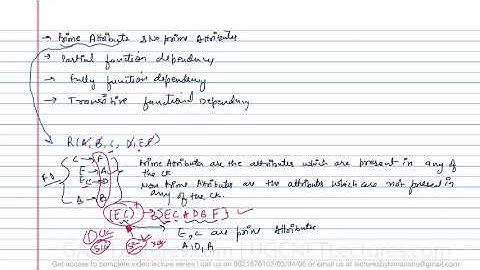 → Prime Attribute & No prime Attributes
→ Partial function dependency
→ Fully function dependency
→ Transitive functional Dependency
R(A, B, C, D, E, F)
C → F
E → A
EC → D
A → B
F.D
Prime Attributes are the attributes which are present in any of
the CK.
Non Prime Attributes are the attributes which are not present in
any of the CK.
(EC)+ → {E C A D B F} ✓
E, C are prime Attribute
A, D, B
Get access to complete video lecture series | call us on